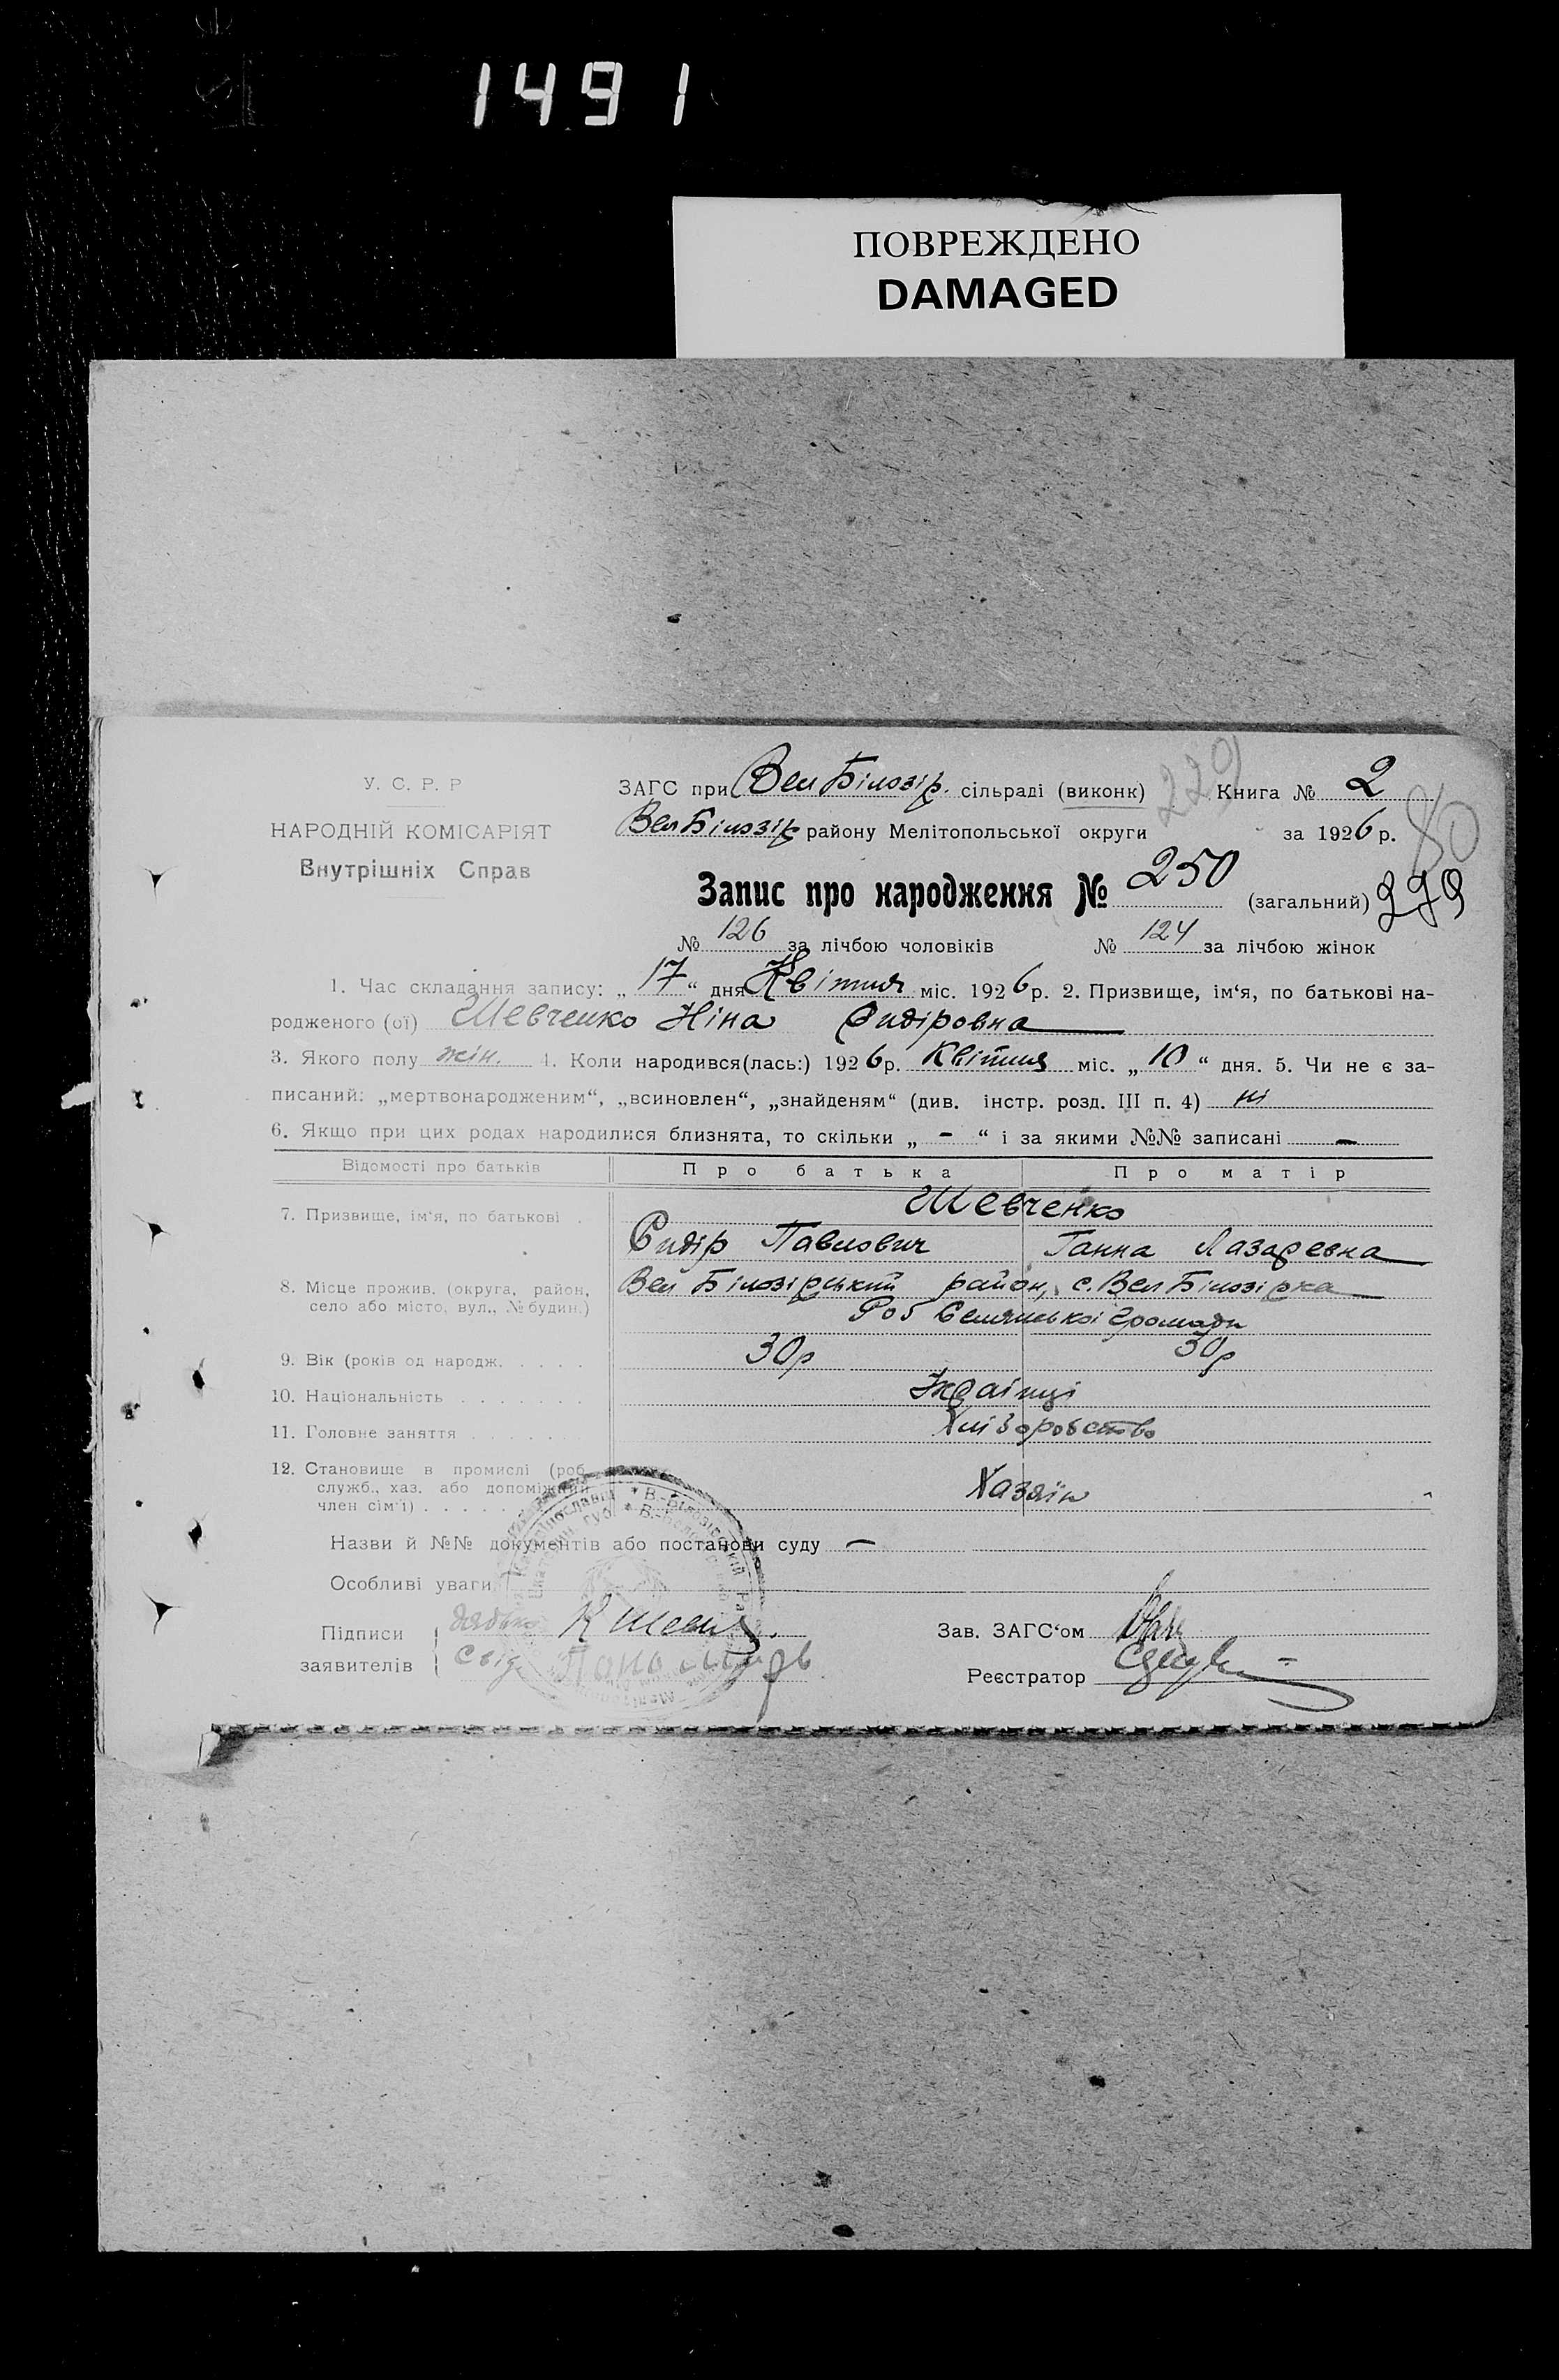 1491
ПОВРЕЖДЕНО
DAMAGED
У. С. Р. Р
НАРОДНІЙ КОМІСАРІЯТ
Внутрішніх Справ
229
ЗАГС при Вел Білозір. сільраді (виконк) Книга № 2
Вел Білозір району Мелітопольської округи за 1926 р.
80
Запис про народження № 250 (загальний) 279
№ 126 за лічбою чоловіків № 124 за лічбою жінок
1. Час складання запису: „17“ дня Квітня міс. 1926 р. 2. Призвище, ім‘я, по батькові на-
родженого (ої) Шевченко Ніна Сидіровна
3. Якого полу жін. 4. Коли народився(лась:) 1926 р. Квітня міс. „10“ дня. 5. Чи не є за-
писаний: „мертвонародженим“, „всиновлен“, „знайденям“ (див. інстр. розд. III п. 4) ні
6. Якщо при цих родах народилися близнята, то скільки „ - “ і за якими №№ записані —
Відомості про батьків Про батька Про матір
7. Призвище, ім‘я, по батькові . Шевченко
Сидір Павлович Ганна Лазаревна
8. Місце прожив. (округа, район, Вел Білозірський район, с. Вел Білозірка
село або місто, вул., № будин.) Роб Селянської Громади
9. Вік (років од народж. . . . . 30р 30р
10. Національність . . . . . . . Українці
11. Головне заняття . . . . . . Хліборобство
12. Становище в промислі (роб.
служб., хаз. або допоміжний Хазяїн
член сім‘ї) . . . . .
Назви й №№ документів або постанови суду —
Особливі уваги
Підписи дядько К Шевч. Зав. ЗАГС‘ом
заявителів Свід. Реєстратор